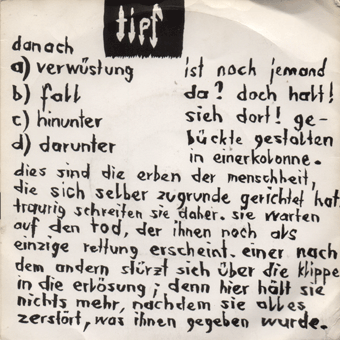 tief
danach
a) verwüstung
b) fall
c) hinunter
d) darunter
ist noch jemand
da? doch halt!
sieh dort! ge-
bückte gestalten
in einerkolonne.
dies sind die erben der menschheit,
die sich selber zugrunde gerichtet hat.
traurig schreiten sie daher. sie warten
auf den tod, der ihnen noch als
einzige rettung erscheint. einer nach
dem andern stürzt sich über die klippe
in die erlösung; denn hier hält sie
nichts mehr, nachdem sie alles
zerstört, was ihnen gegeben wurde.